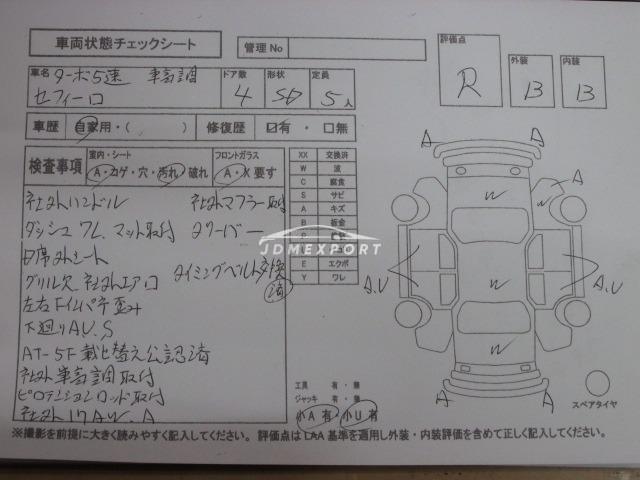 車両状態チェックシート
管理No
評価点 R
外装 B
内装 B
車名 ターボ5速 車高調
セフィーロ
ドア数 4
形状 SD
定員 5人
車歴 自家用・( )
修復歴 ☑有 ・ □無
検査事項
室内・シート
A・コゲ・穴・汚れ 破れ
フロントガラス
A・X 要す
XX 交換済
W 波
C 腐食
S サビ
A キズ
B 板金
E エクボ
Y ワレ
社外ハンドル 社外マフラー取付
ダッシュワレ.マット取付 タワーバー
D席外シート
グリル欠 社外エアロ タイミングベルト交換済
左右Fインパネ歪み
下廻りAU.S
AT-5F載せ替え公認済
社外車高調取付
ピロテンションロッド取付
社外17AW.A
工具 有・無
ジャッキ 有・無
小A有 小U有
A
A
A
W
W
W
W
A.U
A.U
A
A
スペアタイヤ
JDMEXPORT
※撮影を前提に大きく読みやすく記入してください。 評価点はLAA基準を適用し外装・内装評価を含めて正しく記入してください。